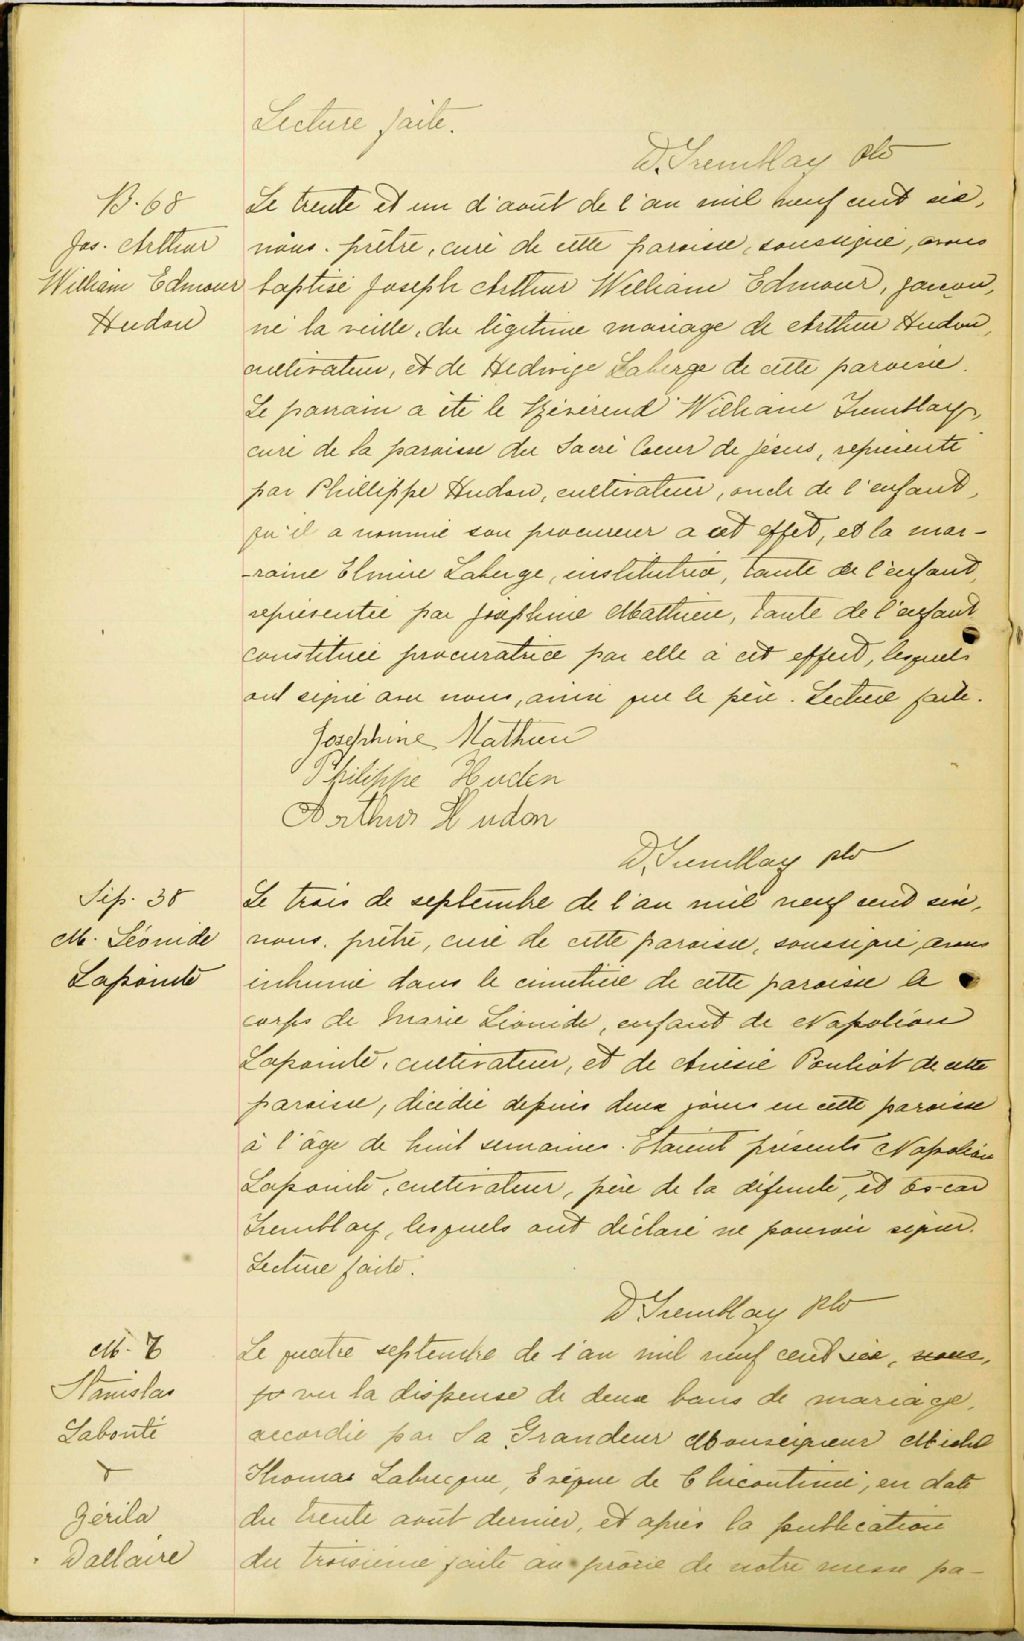 Lecture faite.
D. Tremblay ptr
B. 68
Jos. Arthur
William Edmour
Hudon
Le trente et un d'août de l'an mil neuf cent six,
nous, prêtre, curé de cette paroisse, soussigné, avons
baptisé Joseph Arthur William Edmour, garçon,
né la veille, du légitime mariage de Arthur Hudon,
cultivateur, et de Hedwige Laberge de cette paroisse.
Le parrain a été le Révérend William Tremblay,
curé de la paroisse du Sacré Coeur de Jésus, représenté
par Phillippe Hudon, cultivateur, oncle de l'enfant,
qu'il a nommé son procureur a cet effet, et la mar-
-raine Elmire Laberge, institutrice, tante de l'enfant,
représentée par Joséphine Mathieu, tante de l'enfant
constituée procuratrice par elle à cet effet, lesquels
ont signé avec nous, ainsi que le père. Lecture faite.
Josephine Mathieu
Philippe Hudon
Arthur Hudon
D. Tremblay ptr
Sép. 38
M. Léonide
Lapointe
Le trois de septembre de l'an mil neuf cent six,
nous, prêtre, curé de cette paroisse, soussigné, avons
inhumé dans le cimetière de cette paroisse le
corps de Marie Léonide, enfant de Napoléon
Lapointe, cultivateur, et de Anésie Pouliot de cette
paroisse, décédée depuis deux jours en cette paroisse
à l'âge de huit semaines. Etaient présents Napoléon
Lapointe, cultivateur, père de la défunte, et Oscar
Tremblay, lesquels ont déclaré ne pouvoir signer.
Lecture faite.
D. Tremblay ptr
M. 7
Stanislas
Labonté
&
Zérila
Dallaire
Le quatre septembre de l'an mil neuf cent six, nous,
vu la dispense de deux bans de mariage,
accordée par Sa Grandeur Monseigneur Michel
Thomas Labrecque, Evêque de Chicoutimi, en date
du trente août dernier, et après la publication
du troisième faite au prône de notre messe pa-